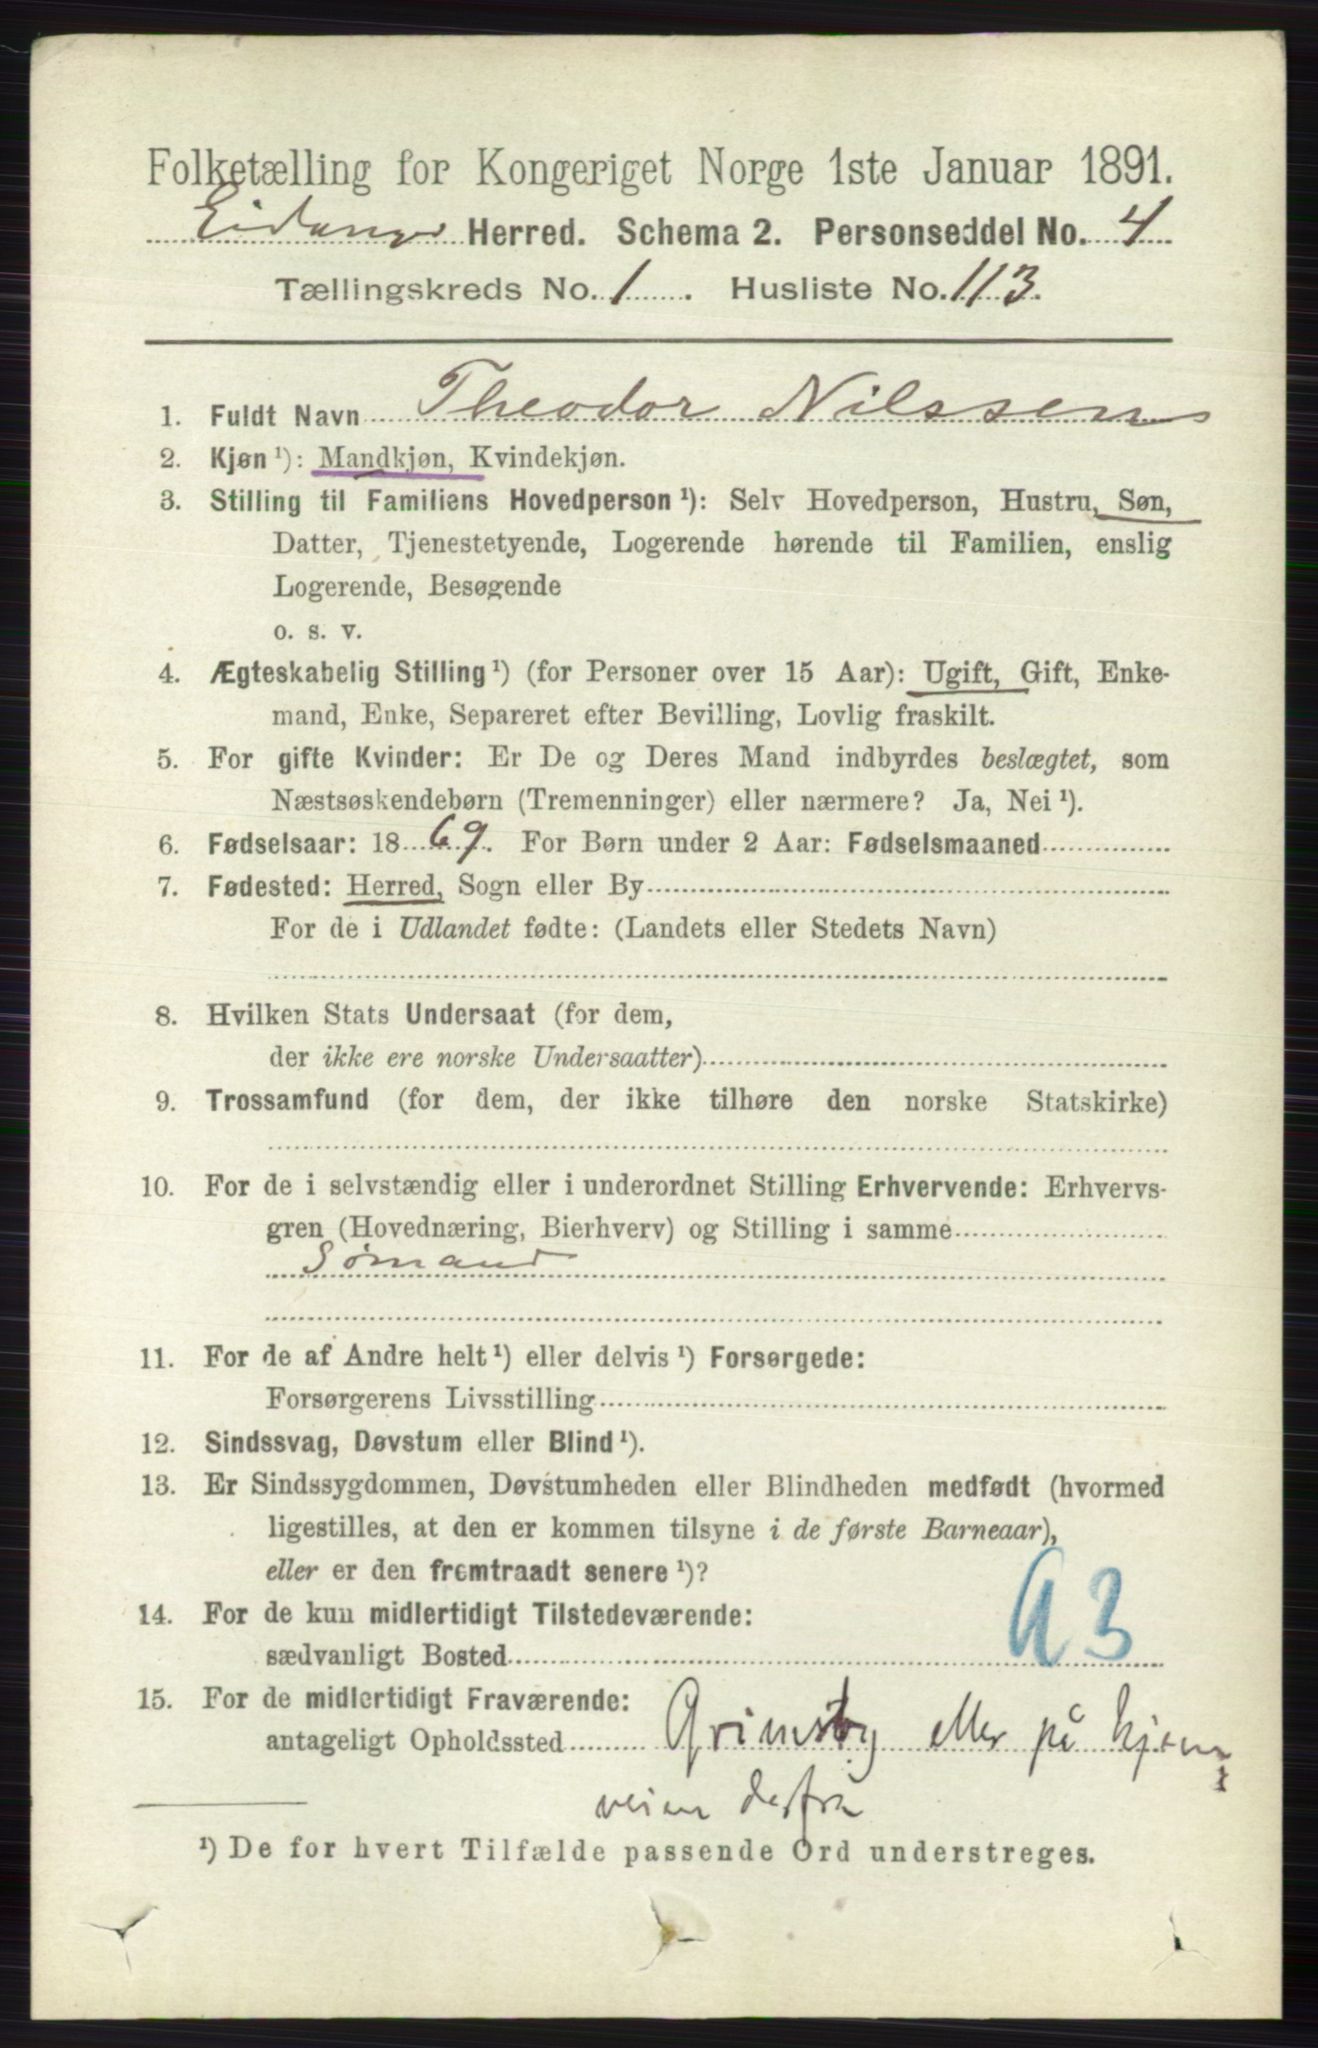 Folketælling for Kongeriget Norge 1ste Januar 1891.
Eidanger Herred. Schema 2. Personseddel No. 4
Tællingskreds No. 1. Husliste No. 113.
1. Fuldt Navn Theodor Nilssen
2. Kjøn ¹): Mandkjøn, Kvindekjøn.
3. Stilling til Familiens Hovedperson ¹): Selv Hovedperson, Hustru, Søn,
Datter, Tjenestetyende, Logerende hørende til Familien, enslig
Logerende, Besøgende
o. s. v.
4. Ægteskabelig Stilling ¹) (for Personer over 15 Aar): Ugift, Gift, Enke-
mand, Enke, Separeret efter Bevilling, Lovlig fraskilt.
5. For gifte Kvinder: Er De og Deres Mand indbyrdes beslægtet, som
Næstsøskendebørn (Tremenninger) eller nærmere? Ja, Nei ¹).
6. Fødselsaar: 1869. For Børn under 2 Aar: Fødselsmaaned
7. Fødested: Herred, Sogn eller By
For de i Udlandet fødte: (Landets eller Stedets Navn)
8. Hvilken Stats Undersaat (for dem,
der ikke ere norske Undersaatter)
9. Trossamfund (for dem, der ikke tilhøre den norske Statskirke)
10. For de i selvstændig eller i underordnet Stilling Erhvervende: Erhvervs-
gren (Hovednæring, Bierhverv) og Stilling i samme
Sømand
11. For de af Andre helt ¹) eller delvis ¹) Forsørgede:
Forsørgerens Livsstilling
12. Sindssvag, Døvstum eller Blind ¹).
13. Er Sindssygdommen, Døvstumheden eller Blindheden medfødt (hvormed
ligestilles, at den er kommen tilsyne i de første Barneaar),
eller er den fremtraadt senere ¹)?
14. For de kun midlertidigt Tilstedeværende:
sædvanligt Bosted
A3
15. For de midlertidigt Fraværende:
antageligt Opholdssted Grimsby eller på hjem
veien derfra
¹) De for hvert Tilfælde passende Ord understreges.